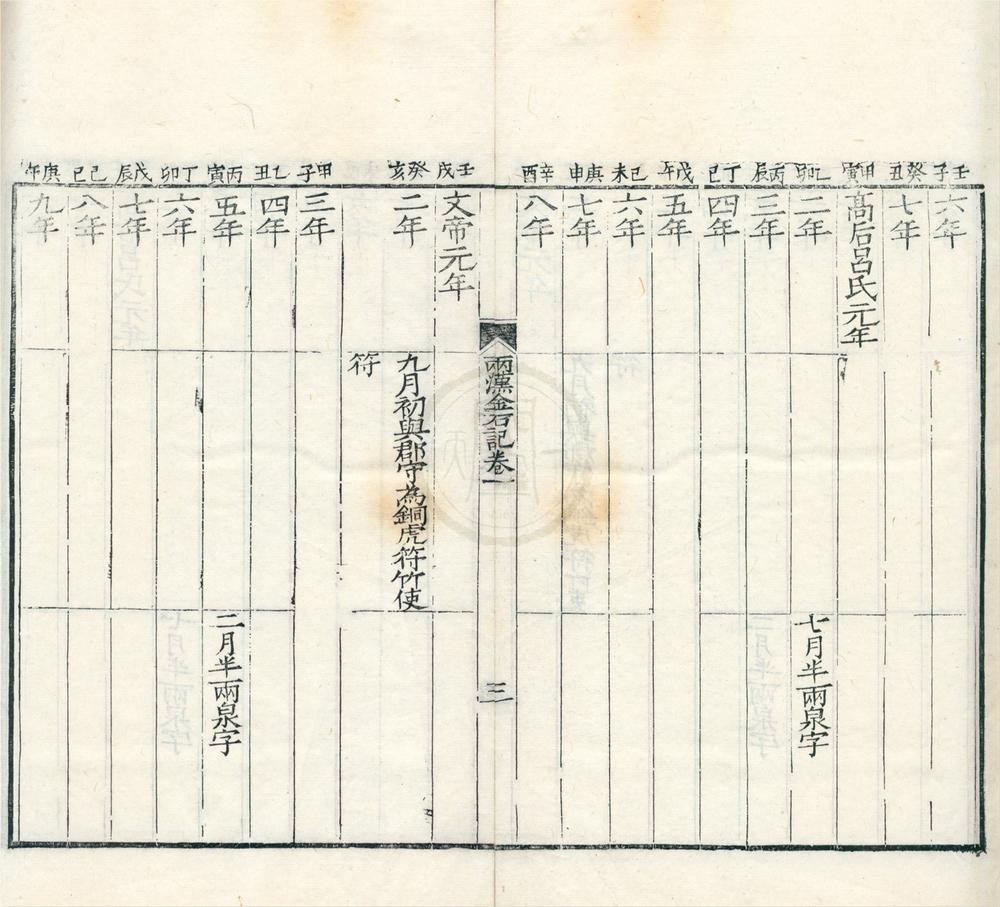 壬子
六年
癸丑
七年
甲寅
高后呂氏元年
乙卯
二年
七月半兩泉字
丙辰
三年
丁巳
四年
戊午
五年
己未
六年
庚申
七年
辛酉
八年
兩漢金石記卷一
三
壬戌
文帝元年
癸亥
二年
九月初與郡守為銅虎符竹使
符
甲子
三年
乙丑
四年
丙寅
五年
二月半兩泉字
丁卯
六年
戊辰
七年
己巳
八年
庚午
九年